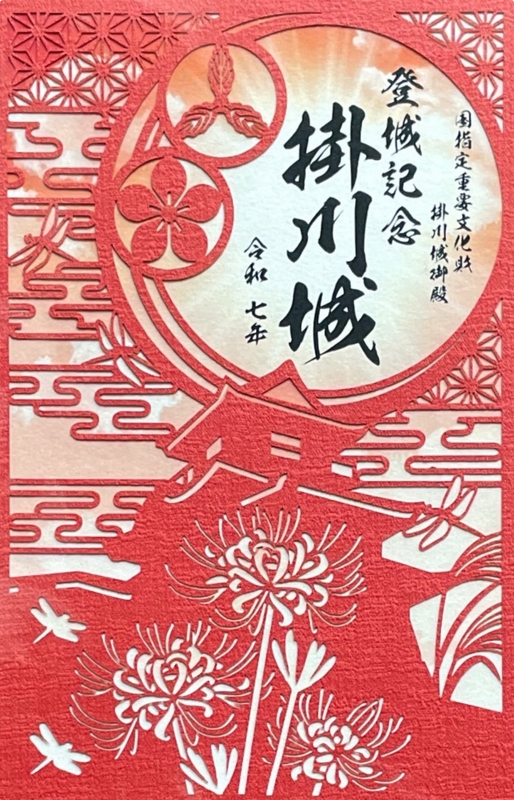 国指定重要文化財
掛川城御殿
登城記念
掛川城
令和七年